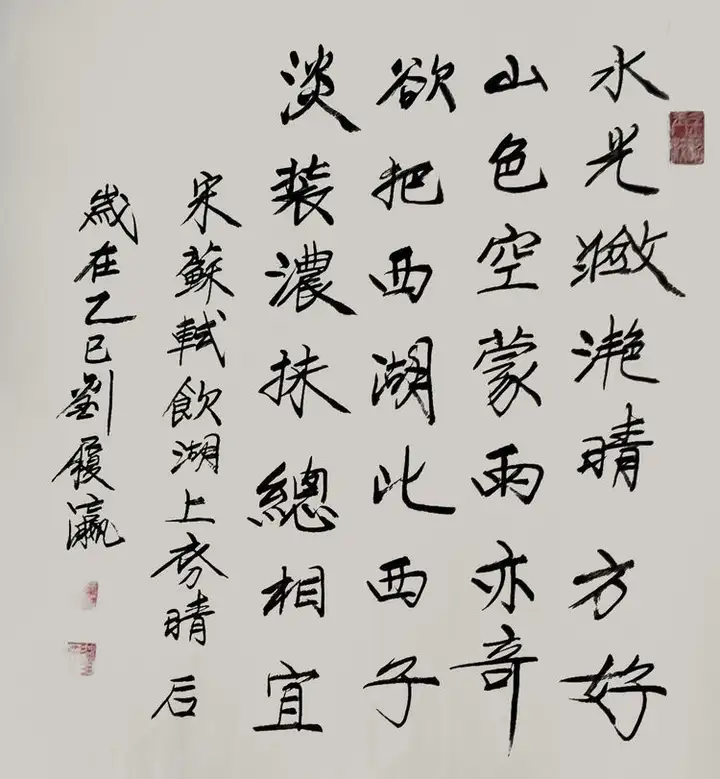 水光潋滟晴方好
山色空蒙雨亦奇
欲把西湖此西子
淡装濃抹總相宜
宋蘇軾飲湖上晴后
歲在乙巳劉瀛